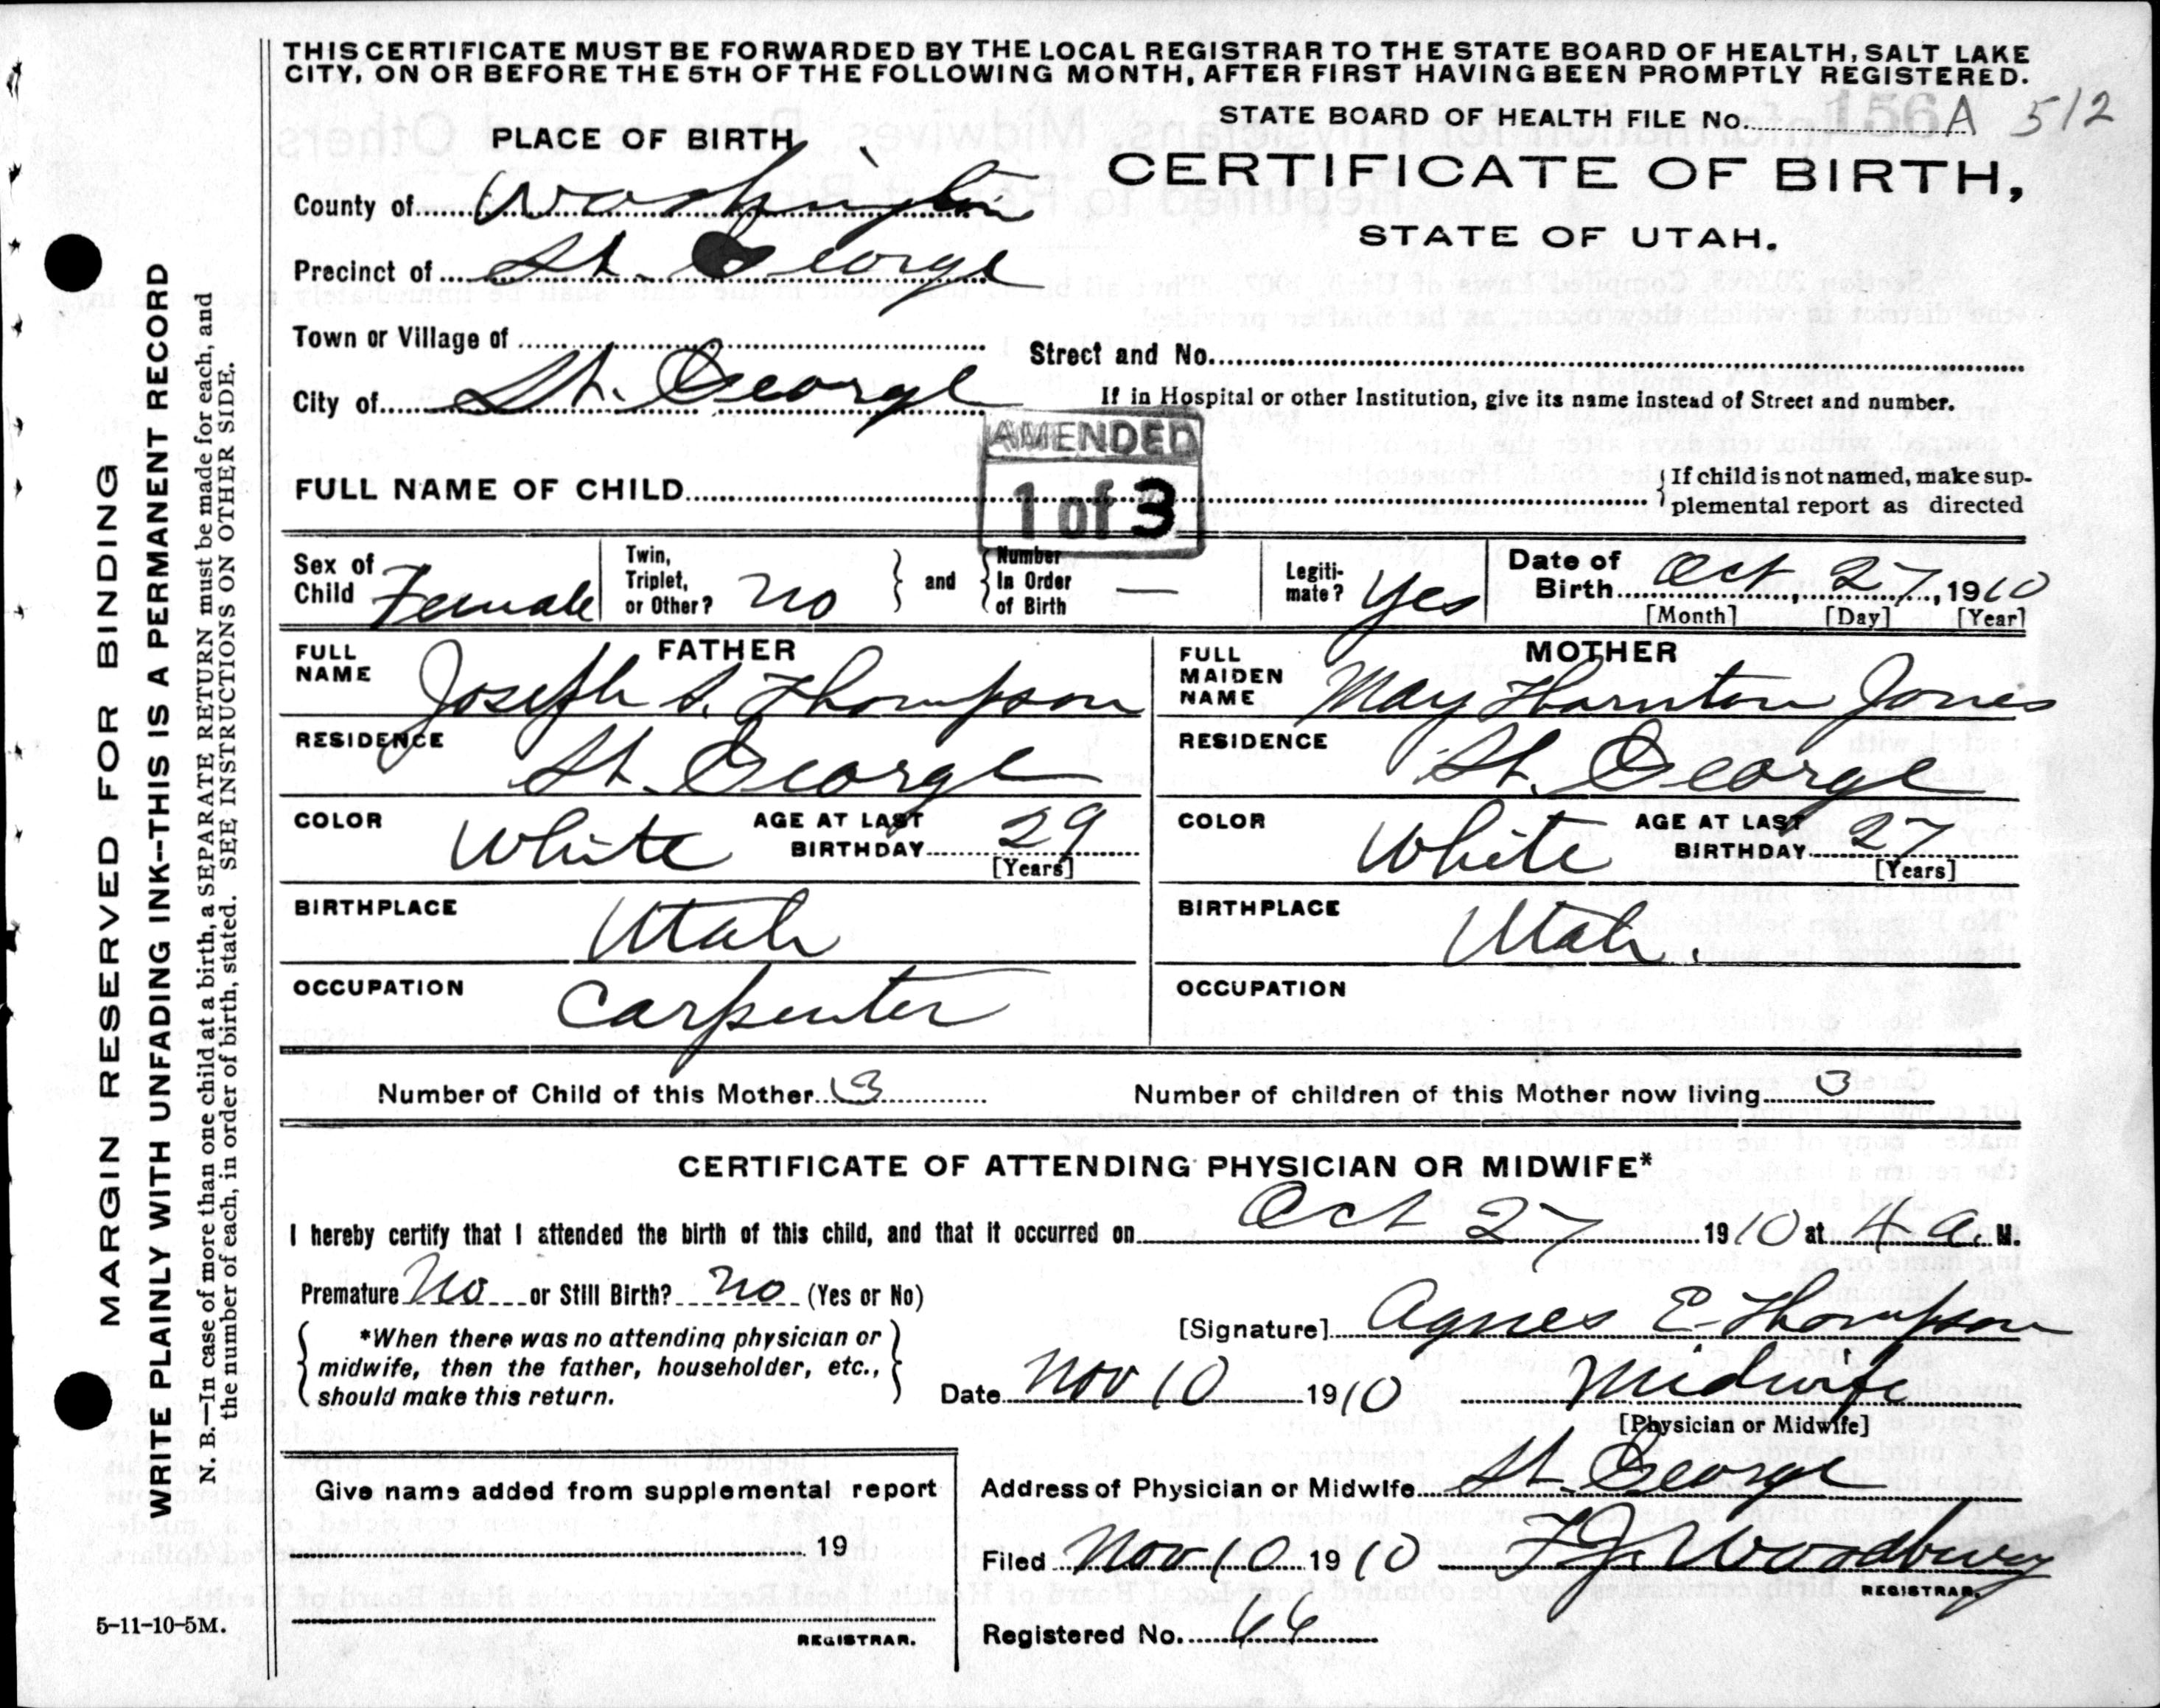 THIS CERTIFICATE MUST BE FORWARDED BY THE LOCAL REGISTRAR TO THE STATE BOARD OF HEALTH, SALT LAKE
CITY, ON OR BEFORE THE 5TH OF THE FOLLOWING MONTH, AFTER FIRST HAVING BEEN PROMPTLY REGISTERED.
STATE BOARD OF HEALTH FILE No. 156A 512
PLACE OF BIRTH
CERTIFICATE OF BIRTH,
STATE OF UTAH.
County of Washington
Precinct of St. George
Town or Village of
Street and No.
City of St. George
If in Hospital or other Institution, give its name instead of Street and number.
AMENDED
1 of 3
FULL NAME OF CHILD
If child is not named, make sup-
plemental report as directed
Sex of Child Female
Twin, Triplet, or Other? No
and
Number In Order of Birth —
Legiti-mate? Yes
Date of Birth Oct, 27, 1910
[Month] [Day] [Year]
FATHER
FULL NAME Joseph S. Thompson
RESIDENCE St. George
COLOR White AGE AT LAST BIRTHDAY 29 [Years]
BIRTHPLACE Utah
OCCUPATION Carpenter
MOTHER
FULL MAIDEN NAME May Thornton Jones
RESIDENCE St. George
COLOR White AGE AT LAST BIRTHDAY 27 [Years]
BIRTHPLACE Utah.
OCCUPATION
Number of Child of this Mother 3
Number of children of this Mother now living 3
CERTIFICATE OF ATTENDING PHYSICIAN OR MIDWIFE*
I hereby certify that I attended the birth of this child, and that it occurred on Oct 27 1910 at 4 a. M.
Premature No or Still Birth? No (Yes or No)
*When there was no attending physician or
midwife, then the father, householder, etc.,
should make this return.
[Signature] Agnes E. Thompson
Date Nov 10 1910 Midwife
[Physician or Midwife]
Address of Physician or Midwife St. George
Filed Nov 10 1910 T. J. Woodbury
REGISTRAR.
Registered No. 66
Give name added from supplemental report
19
REGISTRAR.
5-11-10-5M.
MARGIN RESERVED FOR BINDING
WRITE PLAINLY WITH UNFADING INK--THIS IS A PERMANENT RECORD
N. B.—In case of more than one child at a birth, a SEPARATE RETURN must be made for each, and
the number of each, in order of birth, stated. SEE INSTRUCTIONS ON OTHER SIDE.